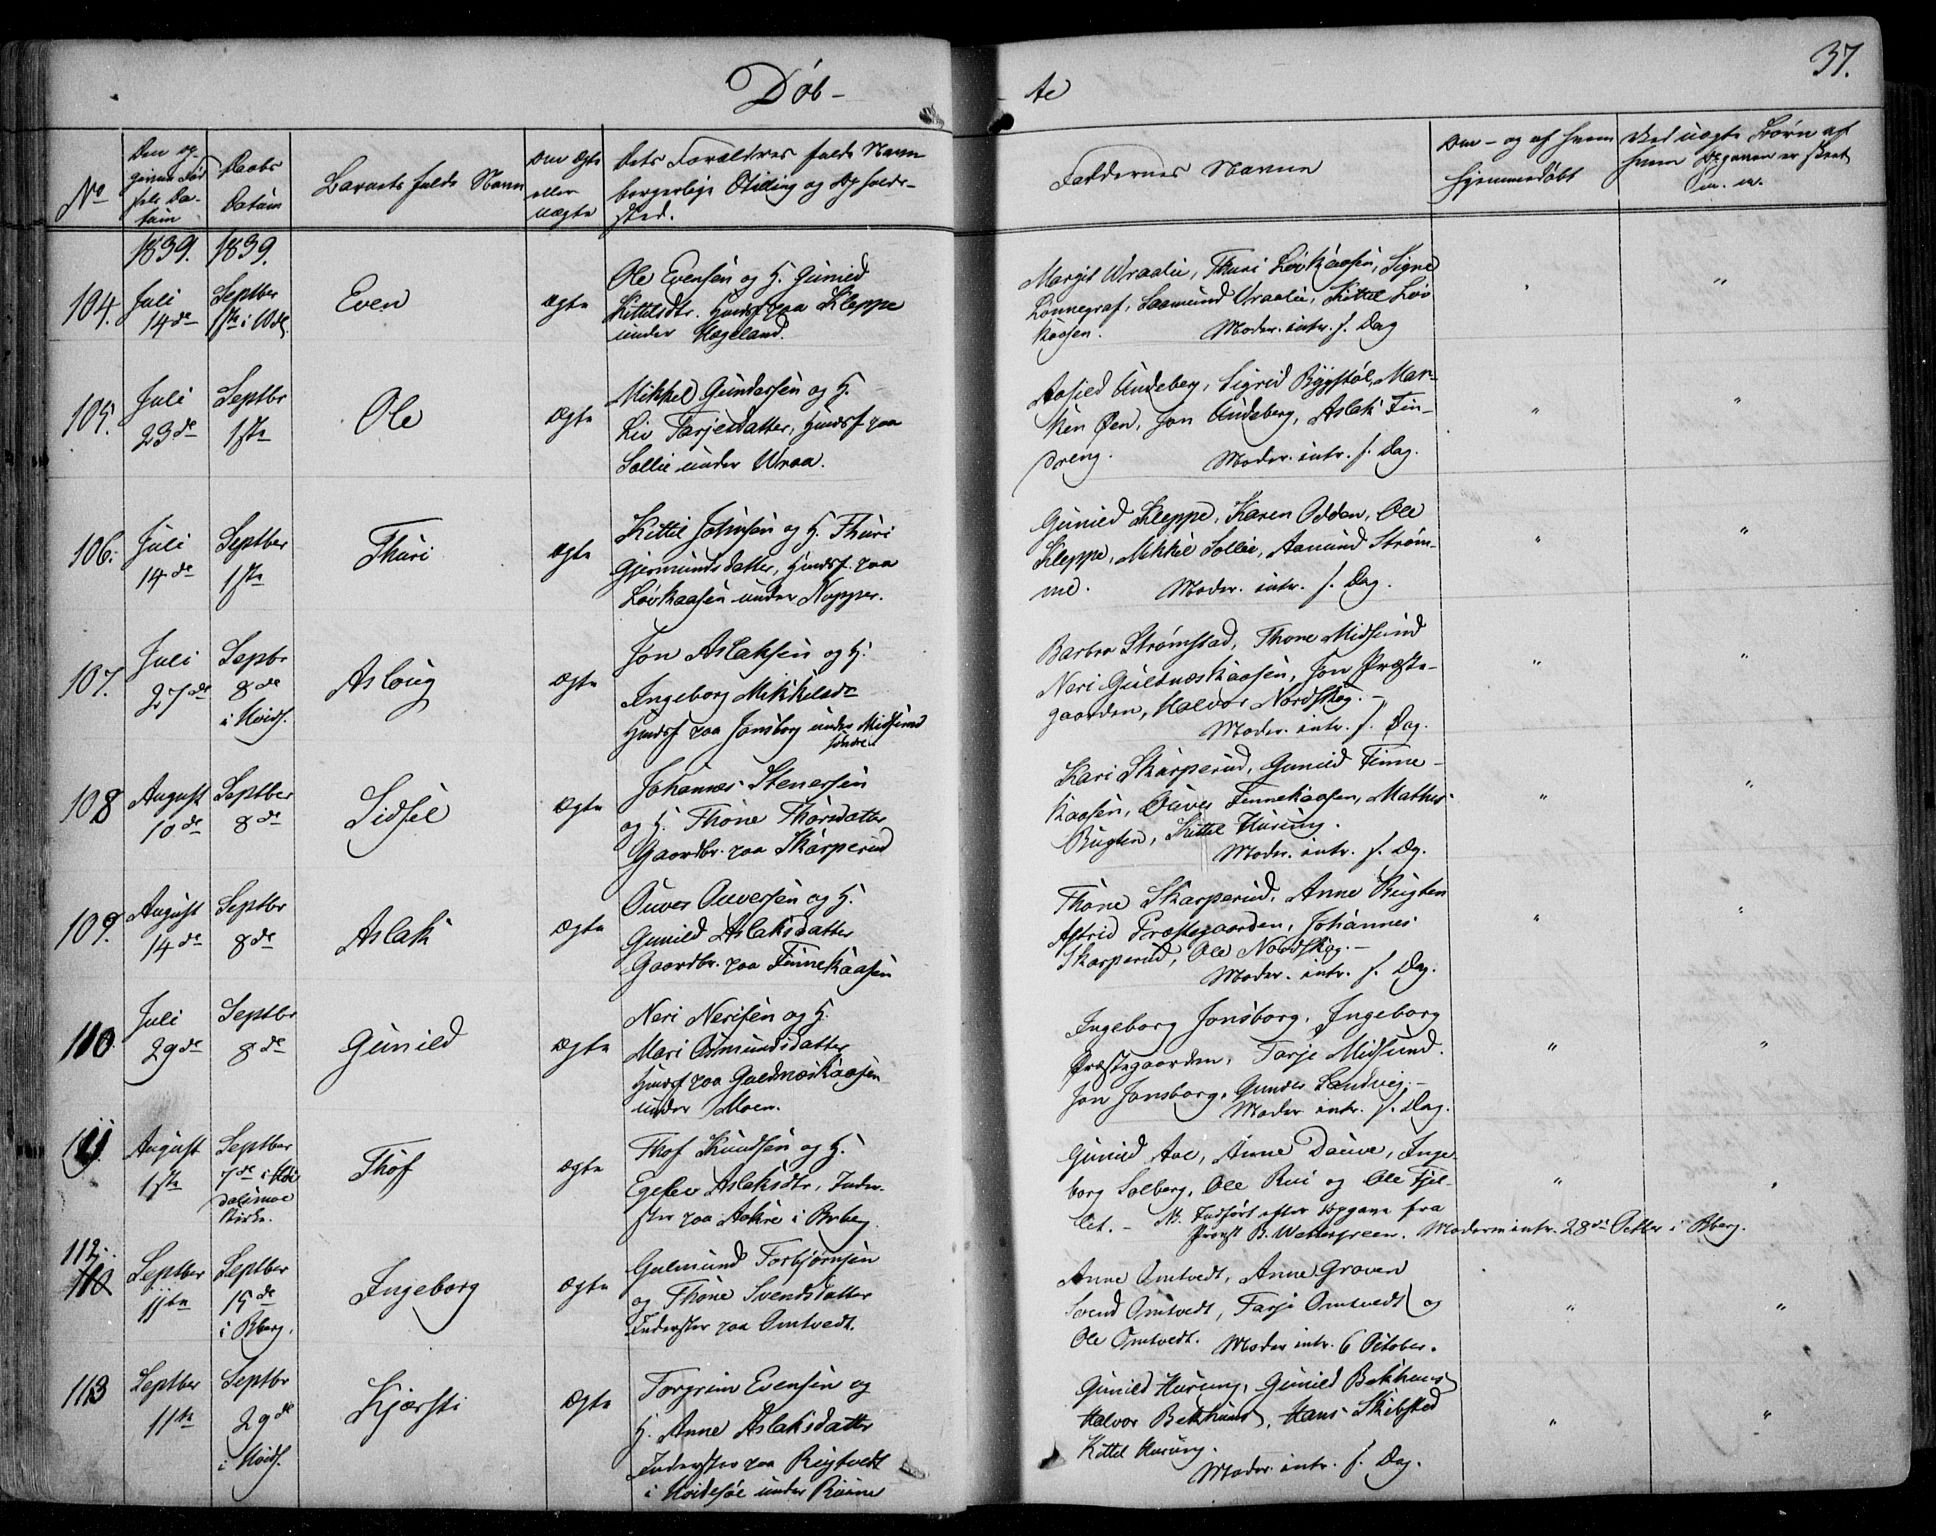 37.
Døb-
te
No
Den op-
givne Fød
sels Da-
tum
Daabs
Datum
Barnets fulde Navn
Om Ægte
eller
Uægte
Dets Forældres fulde Navn
borgerlige Stilling og Opholds-
sted.
Faddernes Navne
Om- og af hvem
hjemmedøbt
Ved uægte Børn af
hvem Opgaven er skeet
m. m.
1839. 1839.
104.
Juli
14de
Septber
1ste i Vdl
Even
ægte
Ole Evensen og H. Gunild
Kittilsdtr. Huusf. paa Kleppe
under Hægeland.
Margit Vraalie, Thuri Løvkaasen, Signe
Lønnegraf, Saamund Vraalie, Kittel Løv
kaasen.
Moder. intr. s. Dag
105.
Juli
23de
Septbr
1ste
Ole
Ægte
Mikkel Gundersen og H.
Liv Tarjesdatter, Huusf. paa
Sollie under Vraa.
Aasild Undeberg, Sigrid Rygstøl, Mar-
then Øen, Jon Undeberg, Aslak Fin-
dreng.
Moder. intr. s. Dag.
106.
Juli
14de
Septber
1ste
Thuri
ægte
Kittil Johnsen og H. Thuri
Gjermundsdatter, Huusf. paa
Løvkaasen under Napper.
Gunild Kleppe, Karen Odden, Ole
Kleppe, Mikkel Sollie, Aamund Strøm-
me.
Moder. intr. s. Dag.
107.
Juli
27de
Sepbr
8de
i Hvids.
Asloug
ægte
Jon Aslaksen og H.
Ingeborg Mikkelsdr
Huusf paa Jonsborg under Midsund
søndre
Barbro Strømstad, Thone Midsund
Neri Guldnæskaasen, Jon Præste-
gaarden, Halvor Nordskog.-
Moder. intr. s. Dag.
108
August
10de
Septber
8de
Sidsel
Ægte
Johannes Stenersen
og H. Thone Thorsdatter
Gaardbr. paa Skarperud
Kari Skarperud, Gunild Finne-
kaasen, Ouver Finnekaasen, Mathis
Rugten, Kittel Hurung.
Moder. intr. s. Dg.
109.
August
14de
Septbr
8de
Aslak
Ægte
Ouver Ouversen og H.
Gunild Aslaksdatter
Gaardbr. paa Finnekaasen
Thone Skarperud, Anne Rugten
Astrid Præstegaarden, Johannes
Skarperud, Ole Nordskog.-
Moder. intr. s. Dag.
110.
Juli
29de
Septbr
8de
Gunild
Ægte
Neri Nerisen og H.
Mari Osmundsdatter
Huusf paa Guldnæskaasen
under Moen.
Ingeborg Jonsborg, Ingeborg
Præstegaarden, Tarje Midsund.
Jon Jonsborg, Gunder Sandvig.-
Moder intr. s. Dag.
111
August
1ste
Septber
7de i
dalsmoe
Kirke.
Thof
Ægte
Thof Knudsen og H.
Egelev Aslaksdtr, Inder-
ster paa Aakre i Brbeg.
Gunild Aae, Anne Daure, Inge-
borg Solberg, Ole Rui og Ole Fjel-
let. - N. Indført efter Opgave fra
Provst B. Wettergreen. Moderen intr. 28de Octber i Bberg.
112.
110
Septber
11te
Septber
15de
i Bberg.
Ingeborg
Ægte
Gulmund Torbjørnsen
og Thone Svendsdatter
Inderster paa Omtvedt.
Anne Omtvedt, Anne Graven
Svend Omtvedt, Tarje Omtvedt og
Ole Omtvedt. Moder intr. 6 October.
113
Septber
11te
Septbr
29de
i Hvids.
Kjersti
Ægte
Torgrim Evensen og
H. Anne Aslaksdatter
Inderster paa Rugtvedt
i Hvidesøe under
Gunild Hurung, Gunild Bekhuus
Halvor Bekhuus, Hans Skibsted
Kittel Hurung.
Moder. intr. s. Dag.